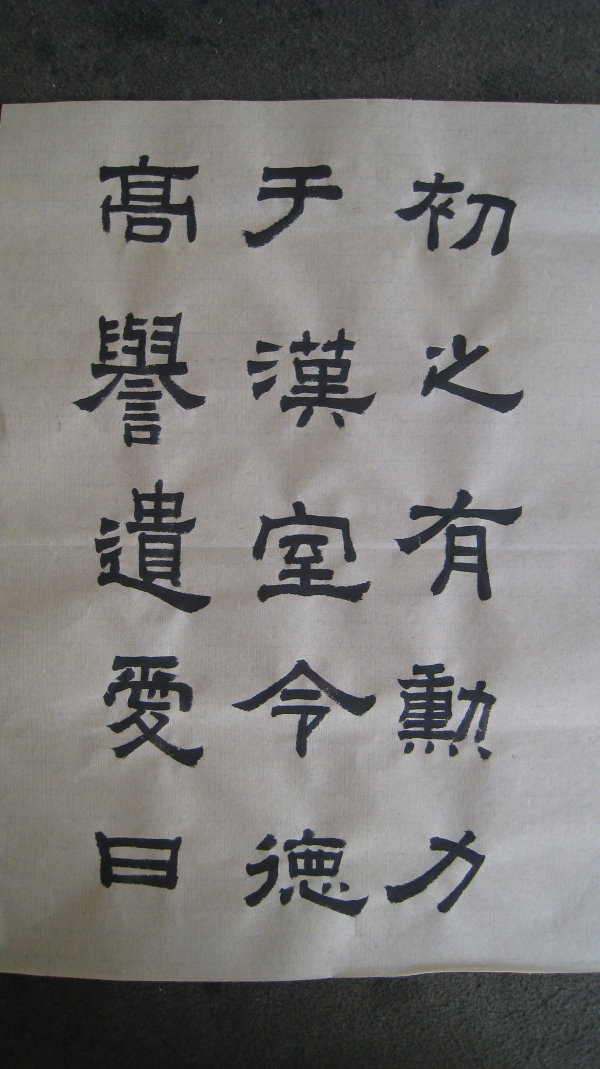 初之有勲力
于漢室令德
髙譽遺愛日